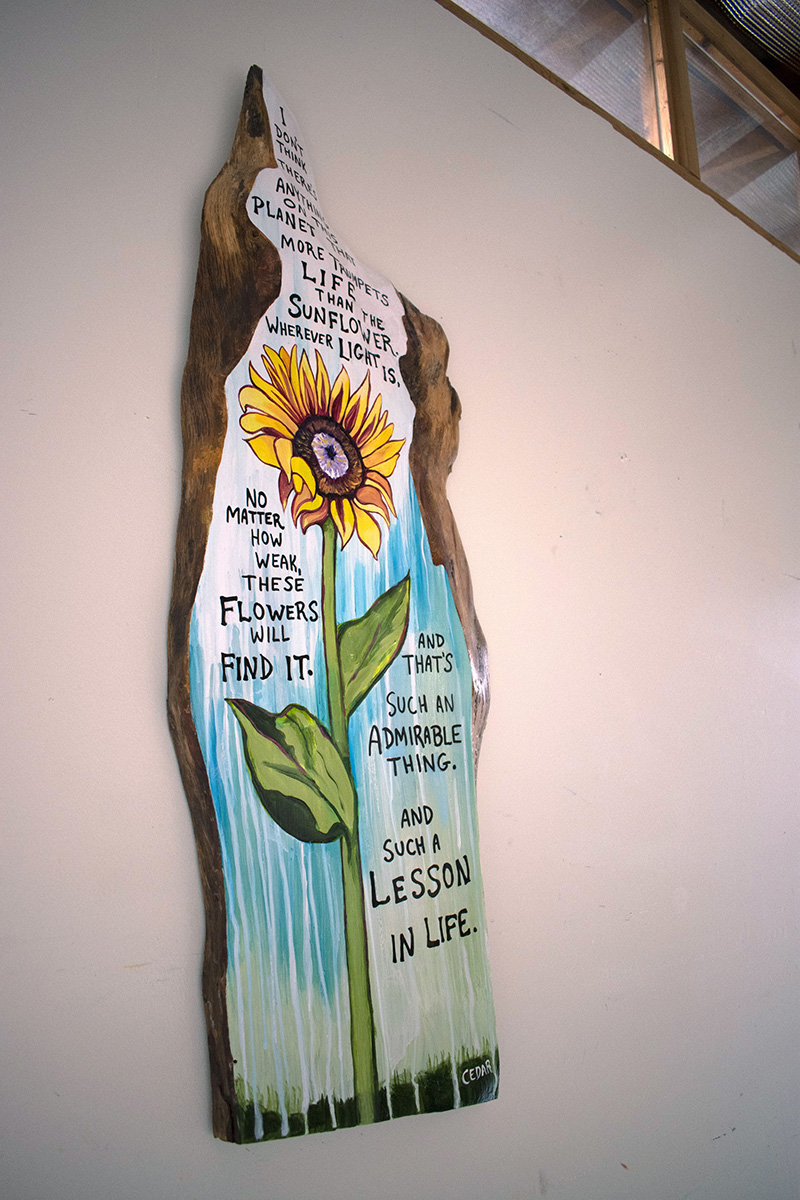 I
DON'T
THINK
THERE'S
ANYTHING
ON THIS
PLANET THAT
MORE TRUMPETS
LIFE
THAN THE
SUNFLOWER.
WHEREVER LIGHT IS.
NO
MATTER
HOW
WEAK,
THESE
FLOWERS
WILL
FIND IT.
AND
THAT'S
SUCH AN
ADMIRABLE
THING.
AND
SUCH A
LESSON
IN LIFE.
CEDAR